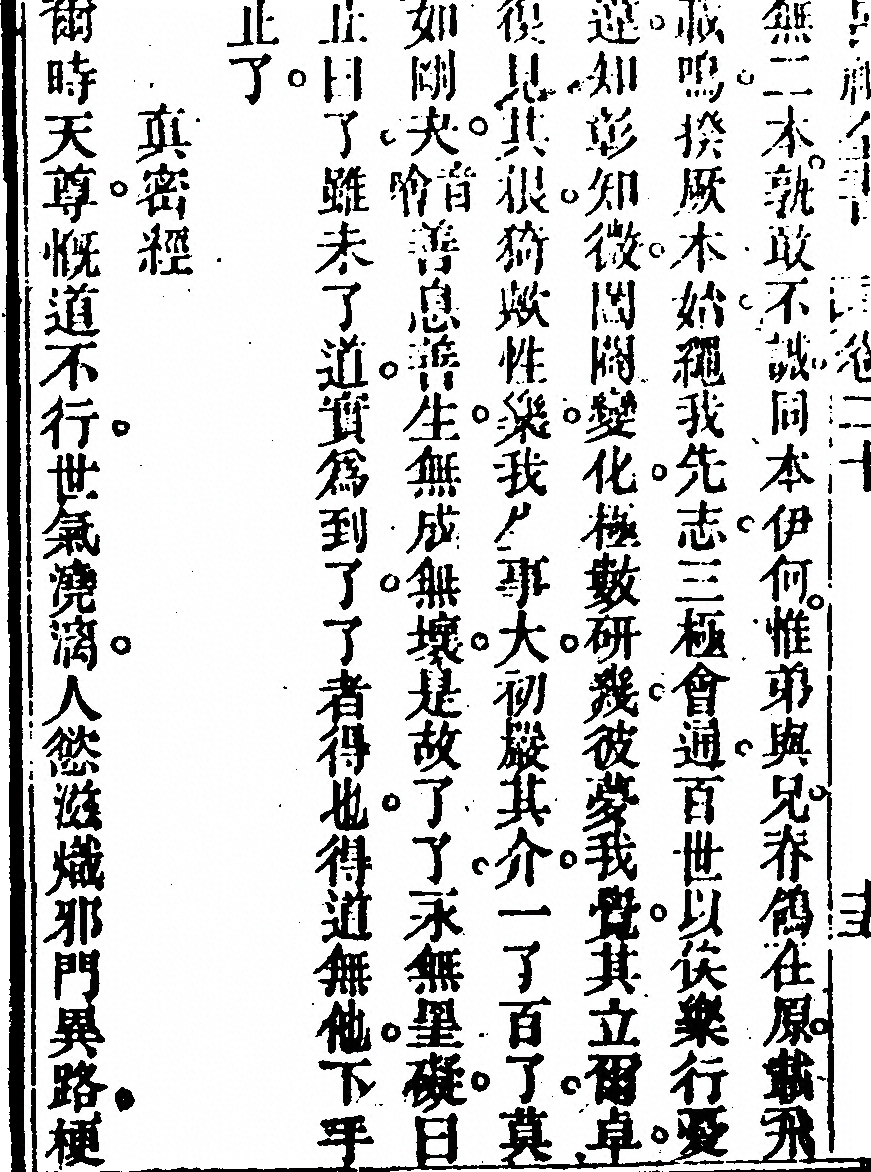 卷二十
無二本孰敢不誠同本伊何惟弟與兄春鴒在原載飛
載鳴揆厥本始繩我先志三極會通百世以俟樂行憂
違知彰知微闔闢變化極數研幾彼夢我覺其立爾卓
復見其根猗歟性樂我事大初嚴其介一了百了莫
如剛夬音善息善生無成無壞是故了了永無罣礙曰
止曰了雖未了道實為到了了者得也得道無他下手
止了
真密經
爾時天尊慨道不行世氣澆漓人慾滋熾邪門異路梗